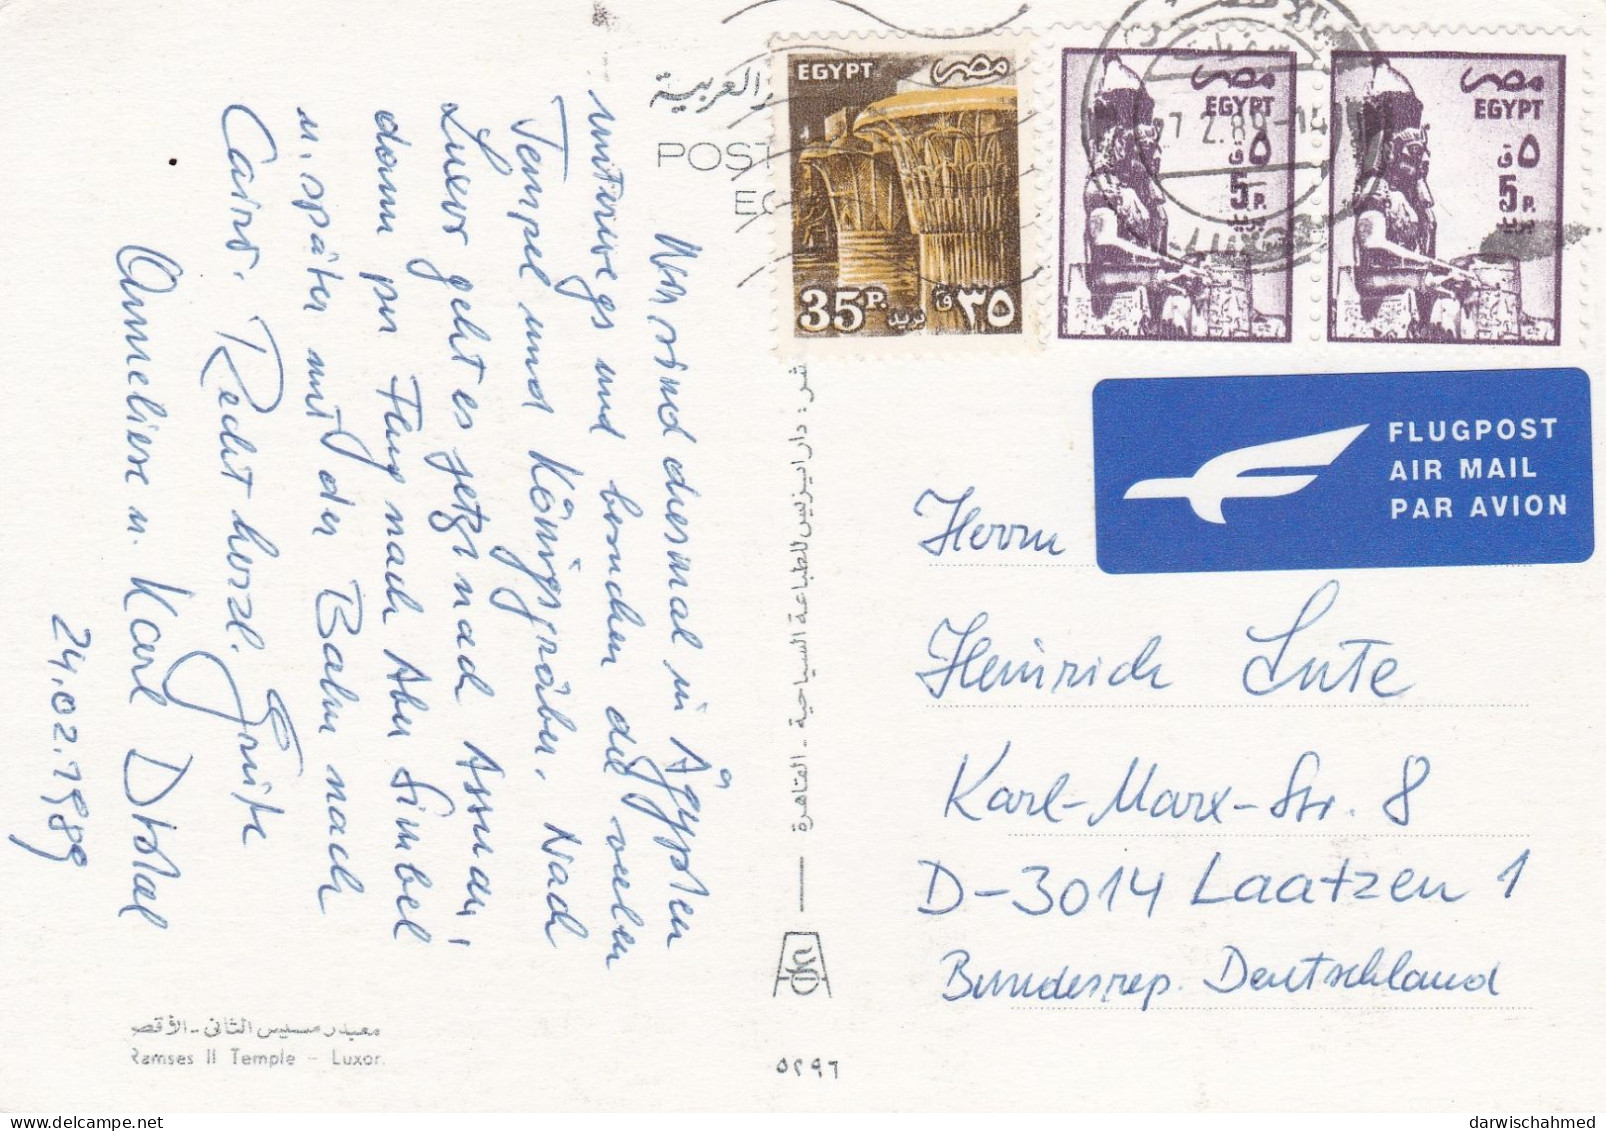 العربية
POST
EGYPT
مصر
35P.
٣٥
بريد
EGYPT
مصر
٥
5P.
بريد
EGYPT
مصر
٥
5P.
بريد
7 2.89-14
FLUGPOST
AIR MAIL
PAR AVION
Wir sind diesmal in Ägypten
unterwegs und besuchen die vielen
Tempel und Königsgräber. Nach
Luxor geht es jetzt nach Assuan,
dann per Flug nach Abu Simbel
u. später mit der Bahn nach
Cairo. Recht herzl. Grüße
Anneliese u. Karl
24.02.1989
Herrn
Heinrich Lüte
Karl-Marx-Str. 8
D-3014 Laatzen 1
Bundesrep. Deutschland
دار ايزيس للطباعة السياحية - القاهرة
معبد رمسيس الثانى - الأقصر
Ramses II Temple - Luxor.
٥٢٩٦
darwischahmed